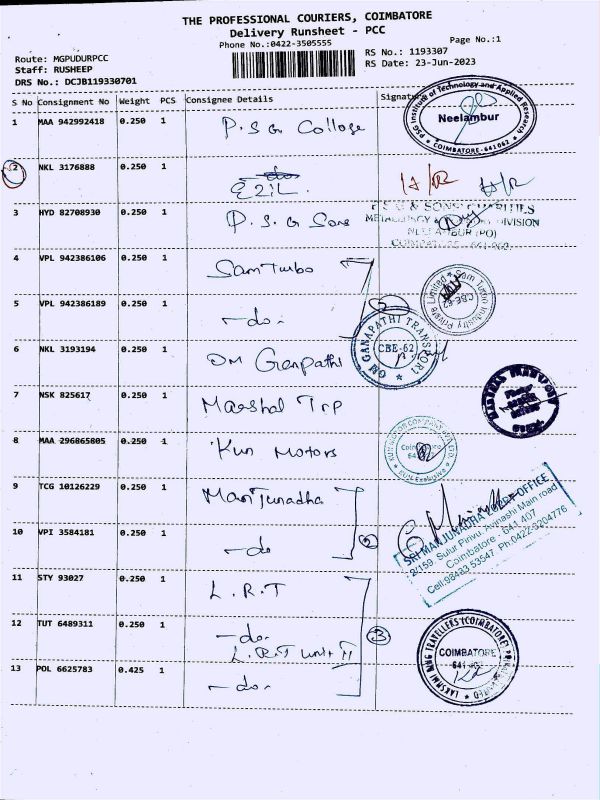 THE PROFESSIONAL COURIERS, COIMBATORE
Delivery Runsheet - PCC
Phone No.:0422-3505555
Page No.:1
Route: MGPUDURPCC
Staff: RUSHEEP
DRS No.: DCJB119330701
RS No.: 1193307
RS Date: 23-Jun-2023
S No Consignment No Weight PCS Consignee Details Signature
PSG Institute of Technology and Applied Research
Neelambur
COIMBATORE-641062
1 MAA 942992418 0.250 1 P.S.G College
2 NKL 3176888 0.250 1 EZIL.
3 HYD 82708930 0.250 1 P.S.G Sons
P S G & SONS' CHARITIES
METALLURGY & DIVISION
NEELAMBUR (PO)
4 VPL 942386106 0.250 1 Sam Turbo
Sam Turbo Industry Private Limited
CBE-62
5 VPL 942386189 0.250 1 -do- 2
6 NKL 3193194 0.250 1 OM Ganpathi
OM GANAPATHI TRANSPORT
CBE-62
7 NSK 825617 0.250 1 Marshal Trp
8 MAA 296865805 0.250 1 Kun Motors
KUN Exclusive
9 TCG 10126229 0.250 1 Manjunadha
10 VPI 3584181 0.250 1 -do 2
SRI MANJUNADHA CORP. OFFICE
2/159, Sulur Pirivu, Avinashi Main road
Coimbatore - 641 407
Cell:98433 53547 Ph:0422-3204776
11 STY 93027 0.250 1 L.R.T
12 TUT 6489311 0.250 1 -do- 3
L.R.T unit II
13 POL 6625783 0.425 1 -do-
LAKSHMI RING TRAVELLERS (COIMBATORE) PRIVATE LIMITED
COIMBATORE